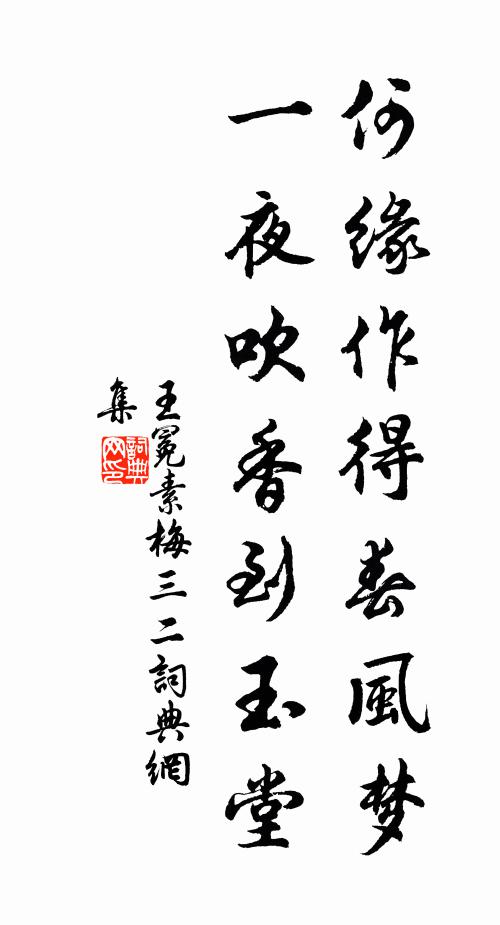 何缘作得春風梦
一夜吹香到玉堂
王冕素梅三二詞典網
集
詞典网印